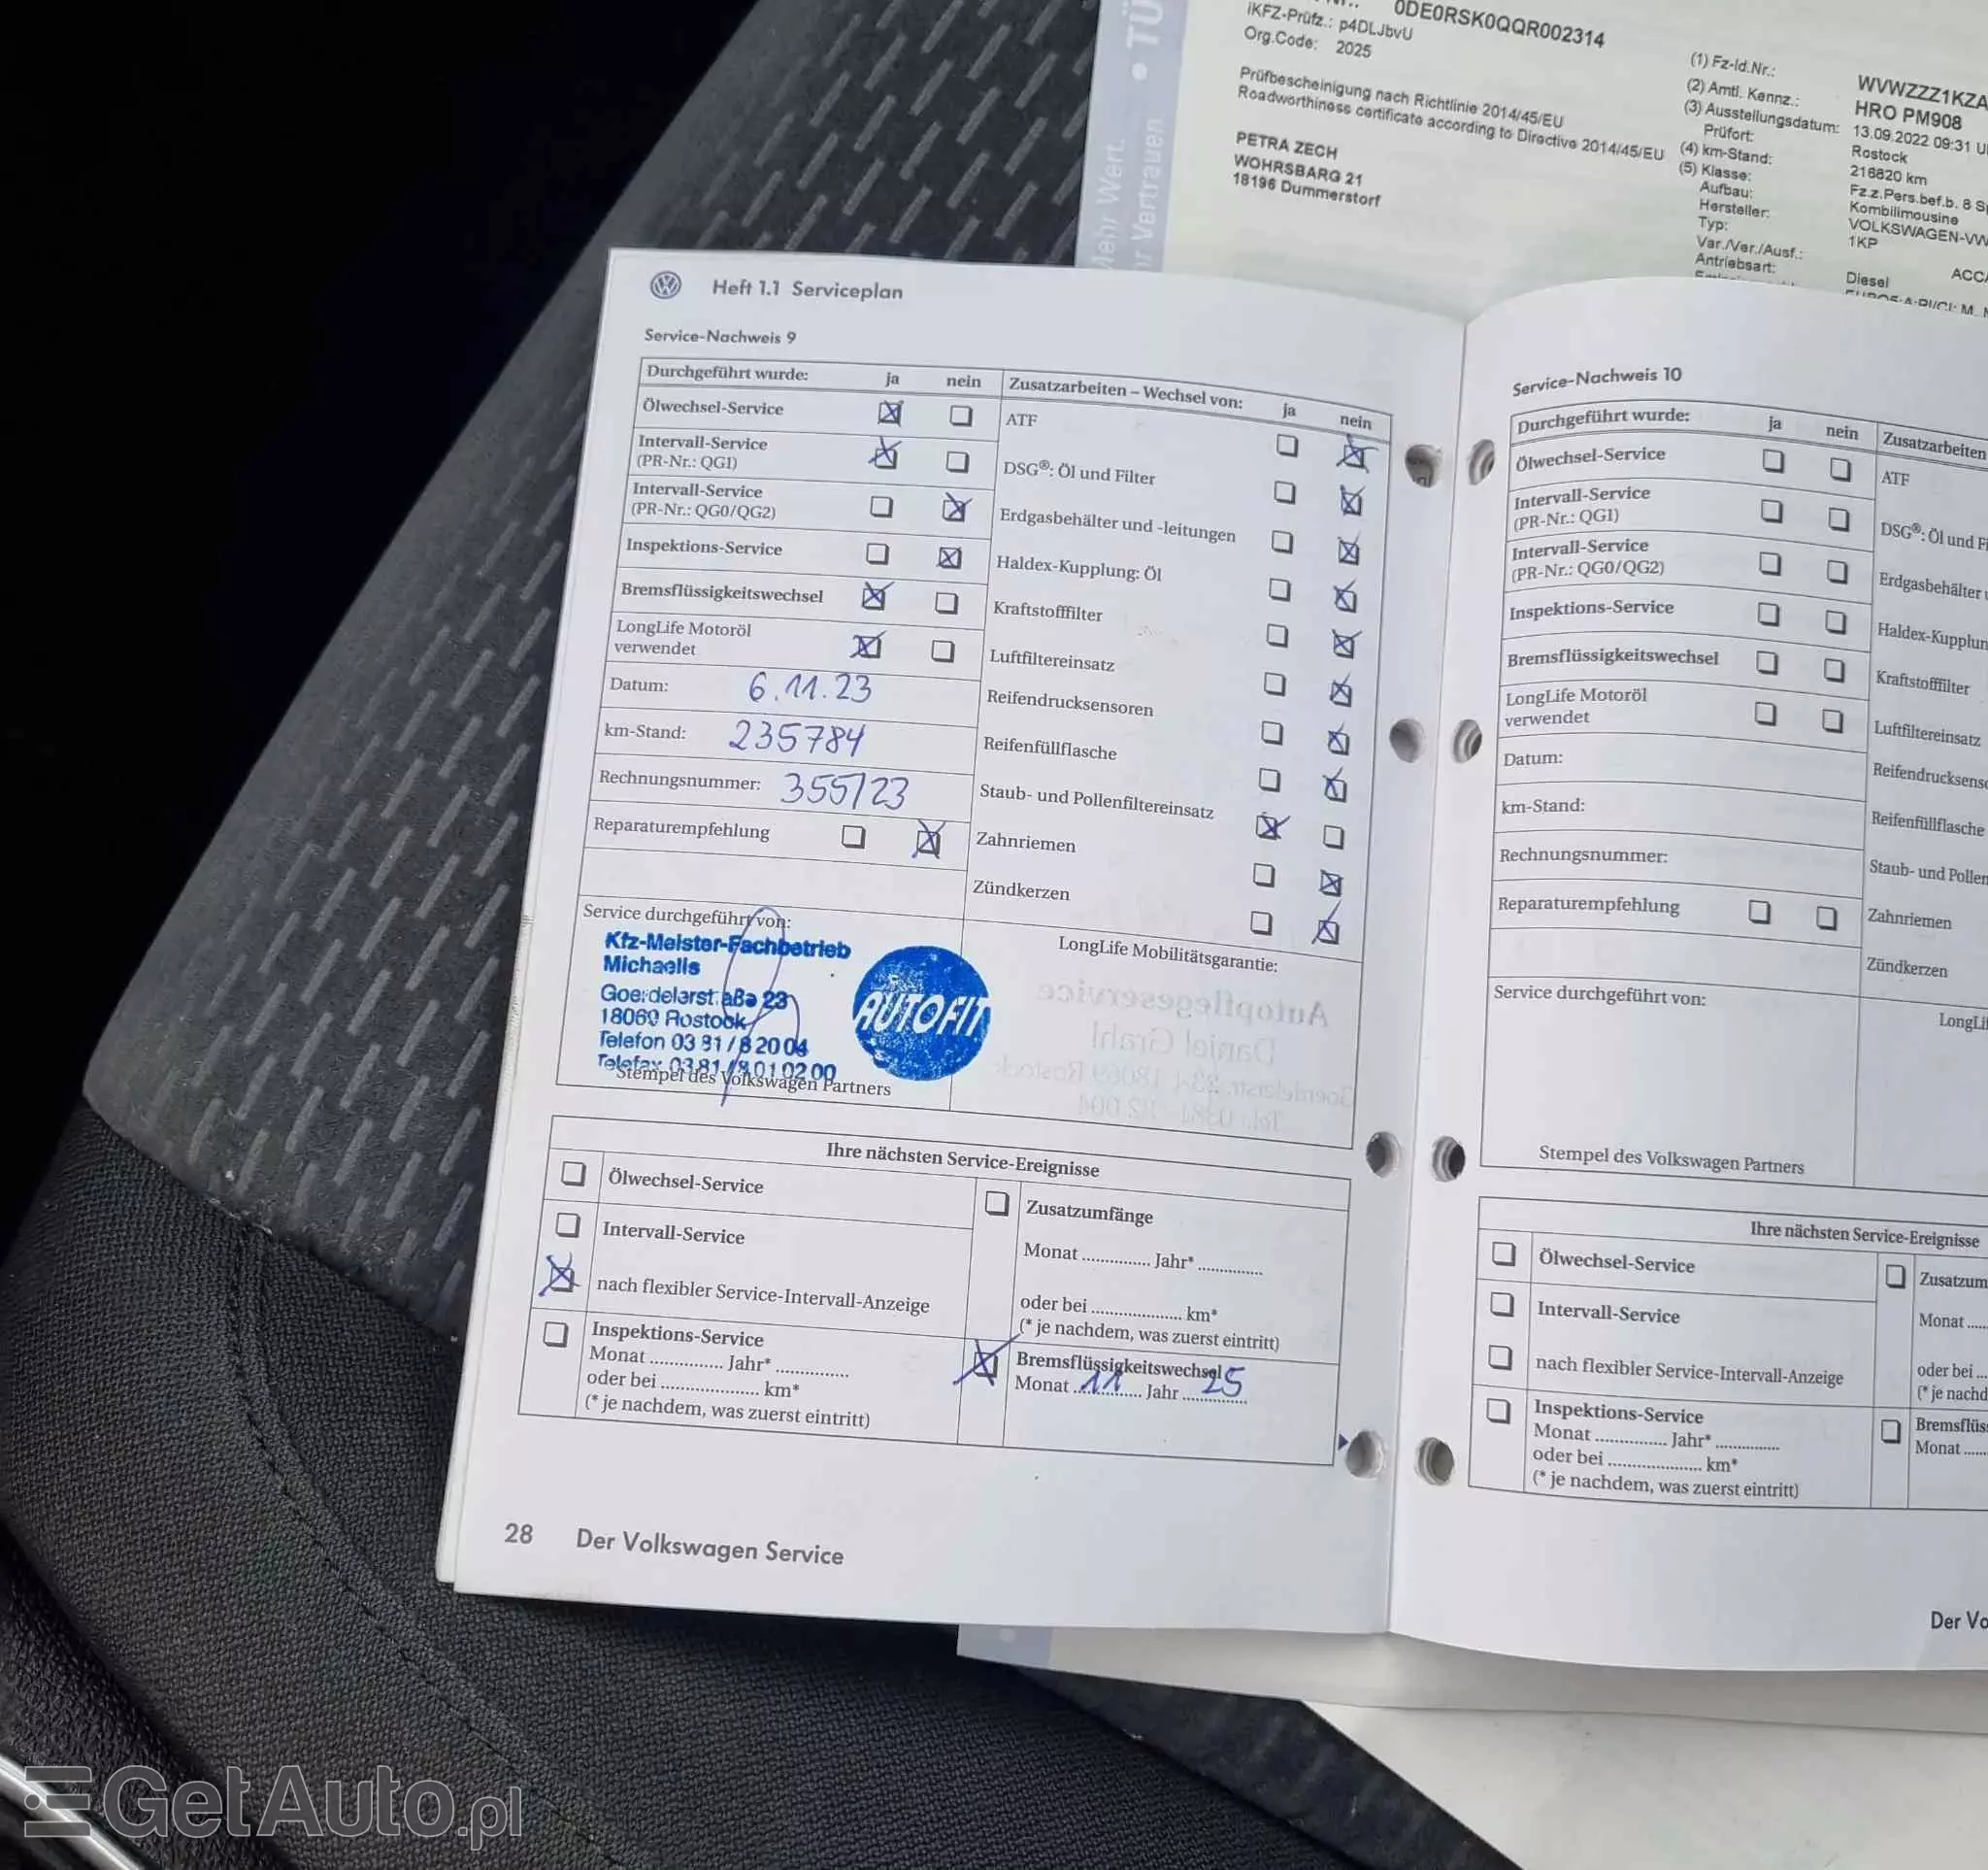 TÜ
Mehr Wert.
Vertrauen
0DE0RSK0QQR002314
iKFZ-Prüfz.: p4DLJbvU
Org.Code: 2025
Prüfbescheinigung nach Richtlinie 2014/45/EU
Roadworthiness certificate according to Directive 2014/45/EU
PETRA ZECH
WOHRSBARG 21
18196 Dummerstorf
(1) Fz-Id.Nr.: WVWZZZ1KZA
(2) Amtl. Kennz.: HRO PM908
(3) Ausstellungsdatum: 13.09.2022 09:31 U
Prüfort: Rostock
(4) km-Stand: 216820 km
(5) Klasse: Fz.z.Pers.bef.b. 8 S
Aufbau: Kombilimousine
Hersteller: VOLKSWAGEN-VW
Typ: 1KP
Var./Ver./Ausf.: ACC
Antriebsart: Diesel
Heft 1.1 Serviceplan
Service-Nachweis 9
Durchgeführt wurde: ja nein
Ölwechsel-Service
Intervall-Service
(PR-Nr.: QG1)
Intervall-Service
(PR-Nr.: QG0/QG2)
Inspektions-Service
Bremsflüssigkeitswechsel
LongLife Motoröl
verwendet
Datum: 6.11.23
km-Stand: 235784
Rechnungsnummer: 355/23
Reparaturempfehlung
Zusatzarbeiten – Wechsel von: ja nein
ATF
DSG®: Öl und Filter
Erdgasbehälter und -leitungen
Haldex-Kupplung: Öl
Kraftstofffilter
Luftfiltereinsatz
Reifendrucksensoren
Reifenfüllflasche
Staub- und Pollenfiltereinsatz
Zahnriemen
Zündkerzen
Service durchgeführt von:
Kfz-Meister-Fachbetrieb
Michaelis
18069 Rostock
Telefon 03 81 / 8 20 04
Telefax 03 81 / 8 01 02 00
AUTOFIT
Stempel des Volkswagen Partners
LongLife Mobilitätsgarantie:
Ihre nächsten Service-Ereignisse
Ölwechsel-Service
Intervall-Service
nach flexibler Service-Intervall-Anzeige
Inspektions-Service
Monat ............... Jahr* ...............
oder bei .................... km*
(* je nachdem, was zuerst eintritt)
Zusatzumfänge
Monat .............. Jahr* ..............
oder bei ................... km*
(* je nachdem, was zuerst eintritt)
Bremsflüssigkeitswechsel
Monat 11 Jahr 25
28 Der Volkswagen Service
Service-Nachweis 10
Durchgeführt wurde: ja nein
Ölwechsel-Service
Intervall-Service
(PR-Nr.: QG1)
Intervall-Service
(PR-Nr.: QG0/QG2)
Inspektions-Service
Bremsflüssigkeitswechsel
LongLife Motoröl
verwendet
Datum:
km-Stand:
Rechnungsnummer:
Reparaturempfehlung
Zusatzarbeiten
ATF
DSG®: Öl und Fi
Erdgasbehälter
Haldex-Kupplun
Kraftstofffilter
Luftfiltereinsatz
Reifendrucksenso
Reifenfüllflasche
Staub- und Pollen
Zahnriemen
Zündkerzen
Service durchgeführt von:
LongLi
Stempel des Volkswagen Partners
Ihre nächsten Service-Ereignisse
Ölwechsel-Service
Intervall-Service
nach flexibler Service-Intervall-Anzeige
Inspektions-Service
Monat .............. Jahr* ..............
oder bei ..................... km*
(* je nachdem, was zuerst eintritt)
Zusatzum
Monat .....
oder bei ...
(* je nachd
Bremsflüs
Monat .....
Der Vo
GetAuto.pl